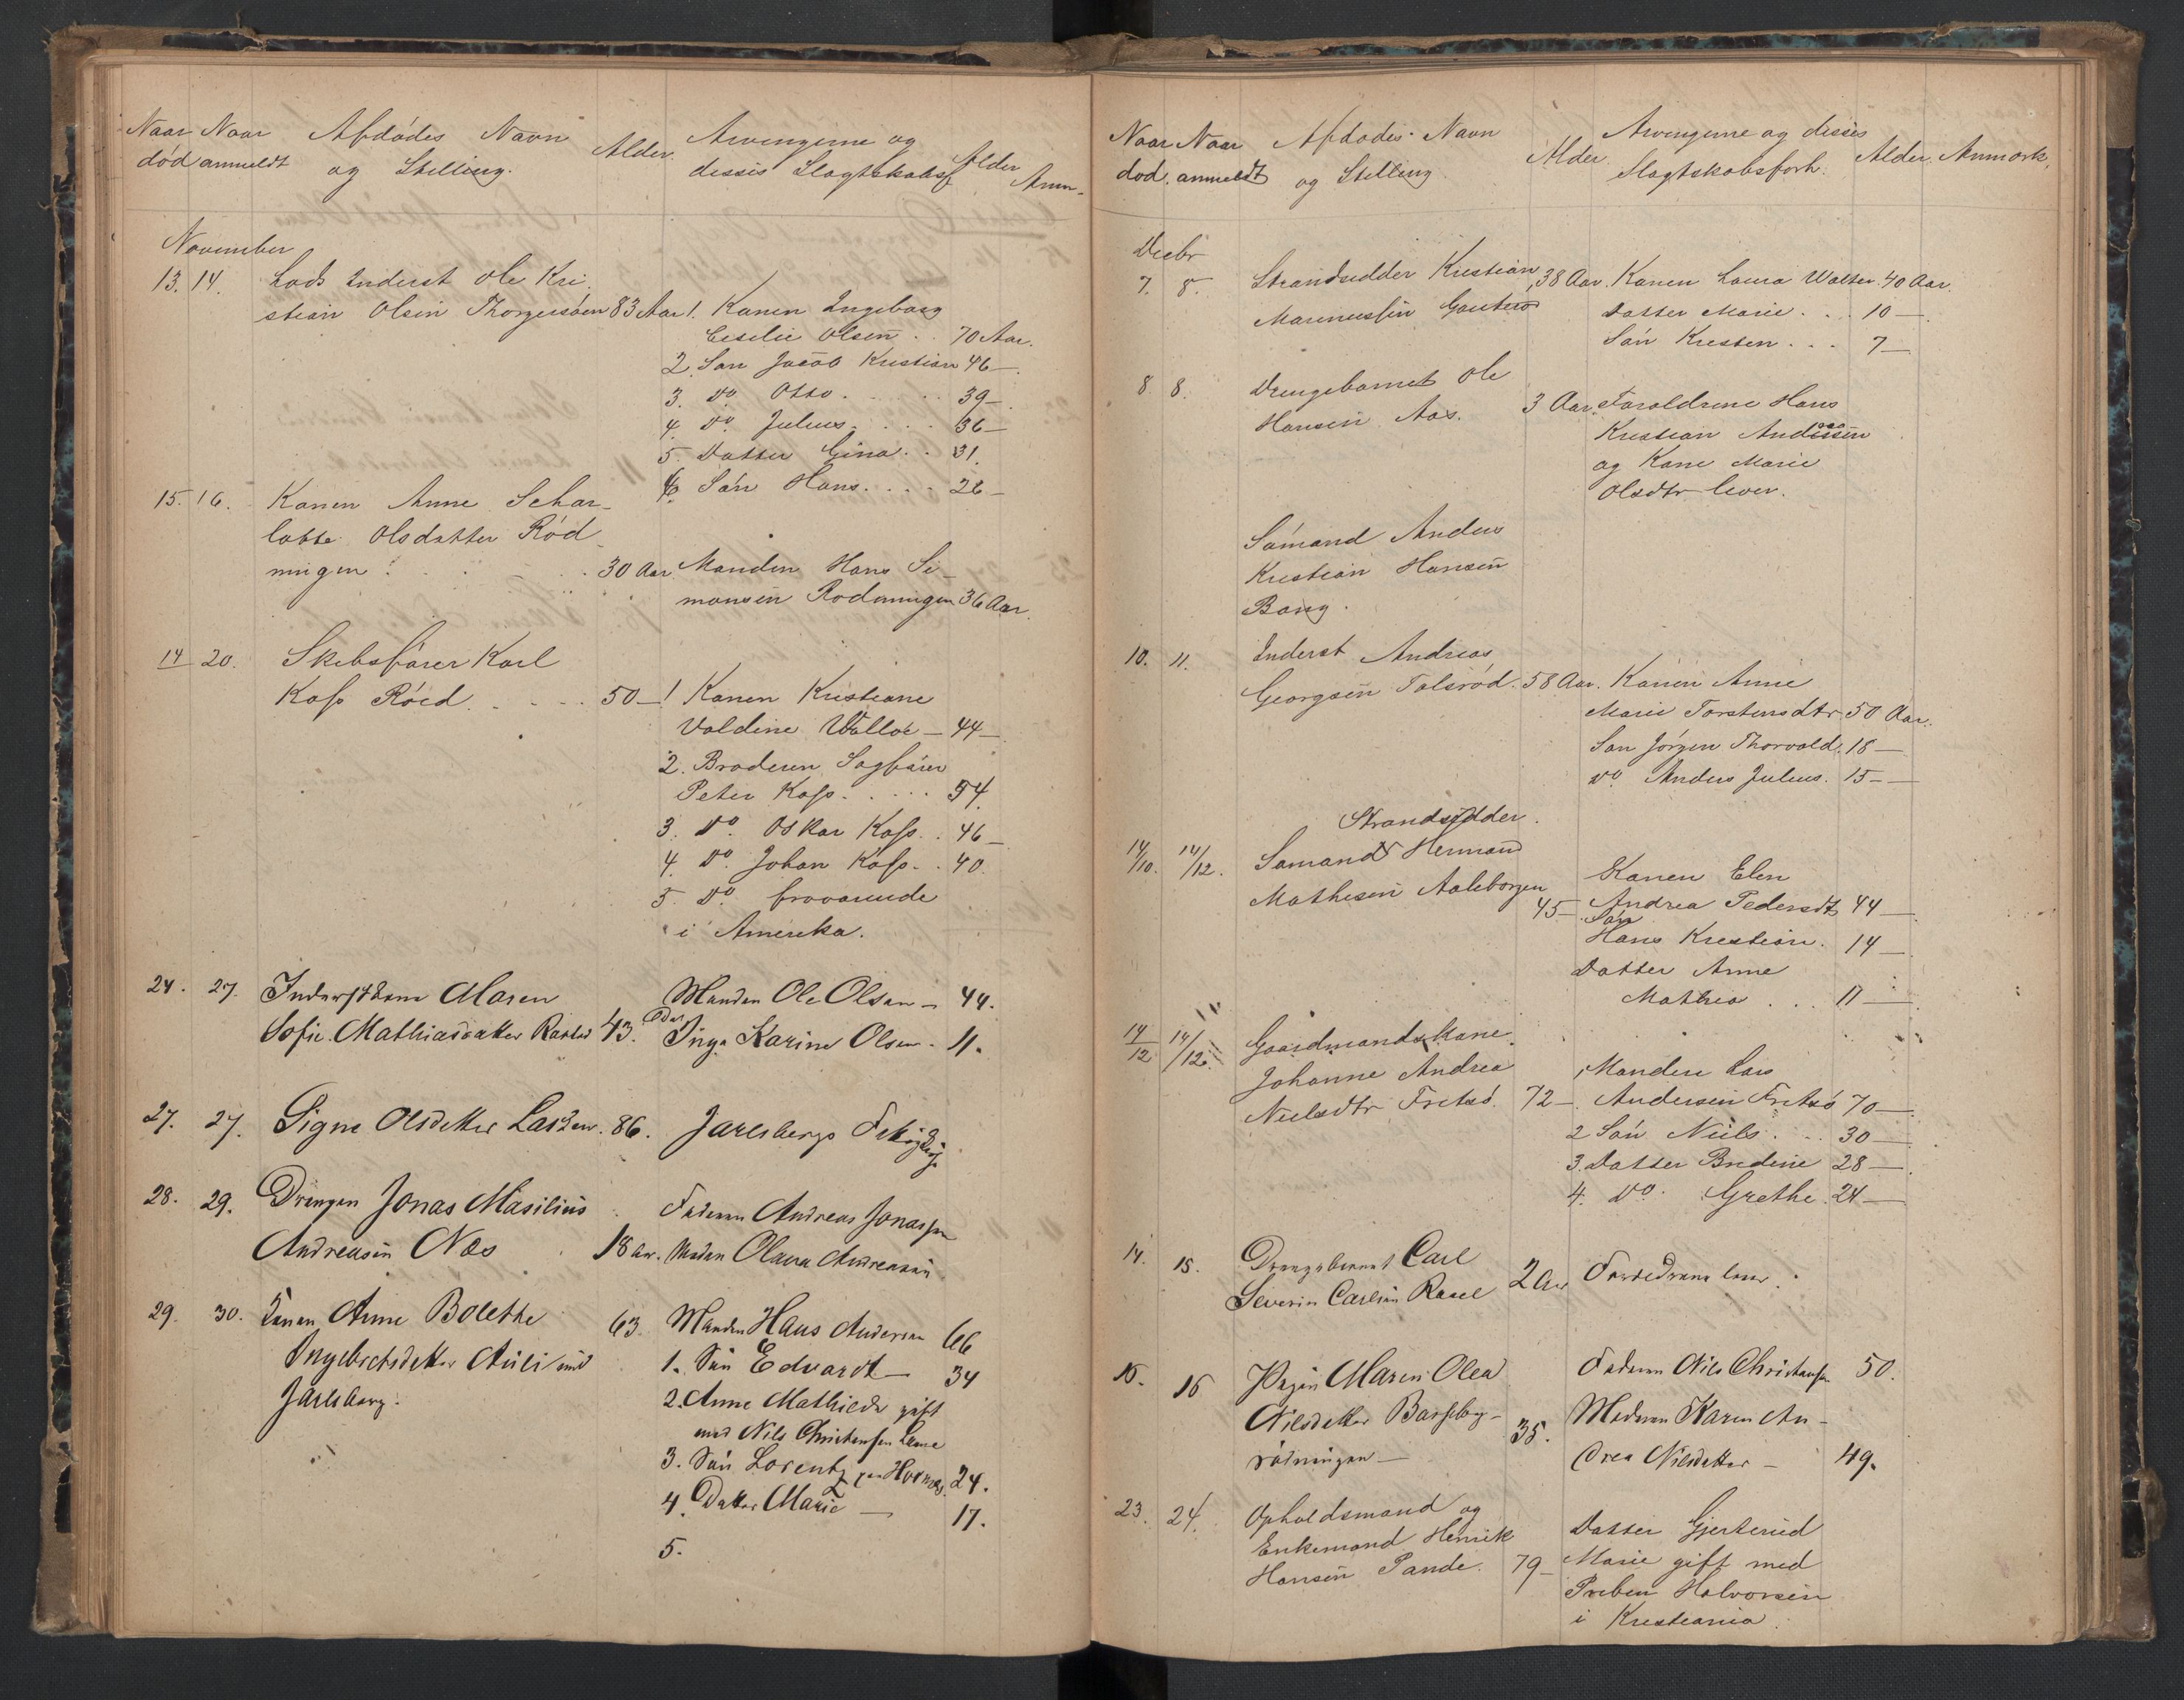 Naar Naar Afdødes Navn Alder. Arvingerne og Alder
død anmeldt og Stilling. disses Slægtskabsf. Anm.
November
13. 14. Lods Inderst Ole Kri-
stian Olsen Thorgersøen 83 Aar 1. Konen Ingeborg
Cesilie Olsen . . 70 Aar.
2. Søn Jacob Kristian 46 —
3. do Otto . . . 39 —
4. do Julius . . . 36 —
5. Datter Gina . . 31.
6. Søn Hans . . . 26 —
15. 16. Konen Anne Schar-
lotte Olsdatter Rød-
ningen . . . 30 Aar Manden Hans Si-
monsen Rødningen 36 Aar.
14 20. Skibsfører Karl
Koss Røed . . . 50 — 1 Konen Kristiane
Valdine Walløe — 44 —
2. Broderen Sagfører
Peter Koss . . . 54.
3. do Oskar Koss . . 46 —
4. do Johan Koss . . 40.
5. do fraværende
i Amerika.
24. 27. Inderstkone Maren Manden Ole Olsen — 44.
Sofie Mathiasdatter Rastad 43. Dat. Inga Karine Olsen . 11.
27. 27. Signe Olsdatter Larsen . 86. Jarlsbergs
28. 29. Drengen Jonas Masilius Faderen Andreas Jonassen
Andreasen Nes 18 Aar. Moderen Olava Andreasen
29. 30. Konen Anne Bolethe 63. Manden Hans Andersen 66
Ingebretsdatter Auli ved 1. Søn Edvardt — 34
Jarlsberg. 2. Anne Mathilde gift
med Nils Christensen
3. Søn Lorentz 24.
4. Datter Marie — 17.
5.
Naar Naar Afdødes Navn Alder. Arvingerne og disses Alder. Anmærk.
død. anmeldt og Stilling Slægtskabsforh.
Decbr
7. 8. Strandsidder Kristian 38 Aar. Konen Laura Walter. 40 Aar.
Marinussen Datter Marie . . . 10 —
Søn Kristen . . . 7 —
8. 8. Drengebarnet Ole
Hansen Aas. 3 Aar. Forældrene Hans
Kristian Andersen
og Kone Marie
Olsdtr lever.
Sømand Anders
Kristian Hansen
Bang.
10. 11. Inderst Andreas
Georgsen Tolsrød. 58 Aar. Konen Anne
Marie Torstensdtr 50 Aar.
Søn Jørgen Thorvald. 18 —
do Anders Julius. 15 —
Strandsidder.
14/10. 14/12. Sømand Herman
Mathisen Aaleborgen 45 — Konen Elen
Andrea Pedersdt 44 —
Søn
Hans Kristian. 14 —
Datter Anne
Mathea . . . 11 —
14/12 14/12. Gaardmandskone
Johanne Andrea Manden Lars
Nielsdtr Fretsø. 72 — Andersen Fretsø 70 —
2 Søn Niels . . . 30 —
3. Datter Bredine 28 —
4. do Grethe. 24 —
14. 15. Drengebarnet Carl
Severin Carlsen Rael 2 Aar Forældrene lever.
15. 16 Pigen Maren Olea Faderen Nils Christensen 50.
Nilsdatter Basseberg- 35. Moderen Karen An-
rødningen — drea Nilsdatter — 49.
23. 24. Opholdsmand og
Enkemand Henrik Datter Gjertrud
Hansen Pande. 79 — Marie gift med
Preben Halvorsen
i Kristiania.